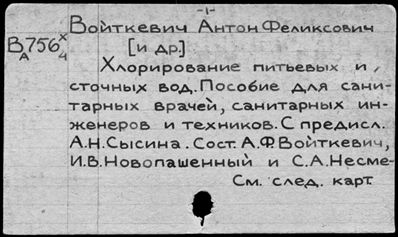 -1-
Войткевич Антон Феликсович
В 756 х
А 4
[и др.]
Хлорирование питьевых и
сточных вод. Пособие для сани-
тарных врачей, санитарных ин-
женеров и техников. С предисл.
А.Н. Сысина. Сост. А.Ф. Войткевич,
И.В. Новопашенный и С.А. Несме-
См. след. карт.